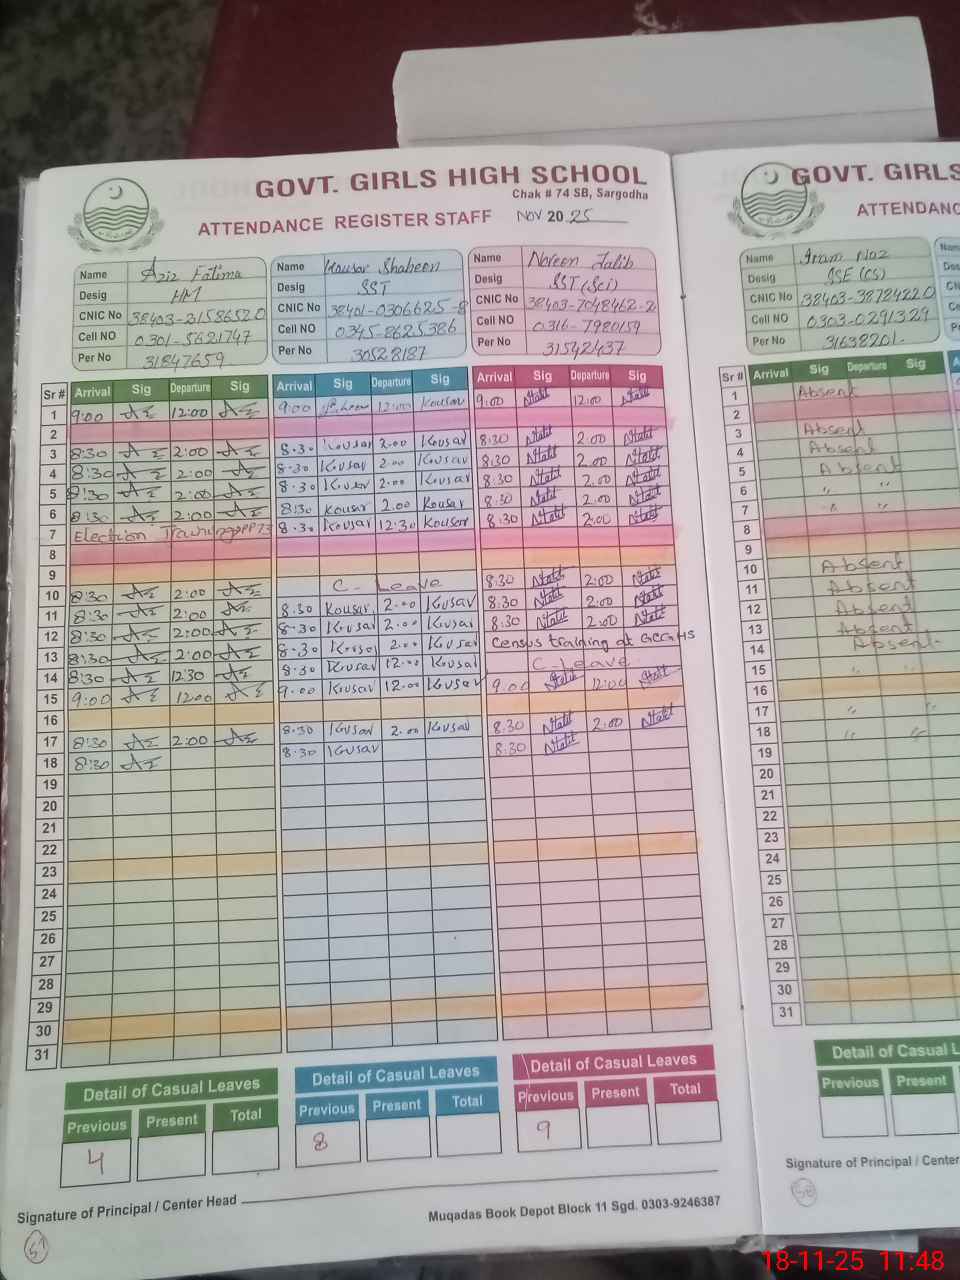 GOVT. GIRLS HIGH SCHOOL
Chak # 74 SB, Sargodha
ATTENDANCE REGISTER STAFF Nov 2025
Name Aziz Fatima
Desig HM
CNIC No
Cell NO 0301-5621747
Per No 31847659
Name Kousar Shaheen
Desig SST
CNIC No 38401-0306625-8
Cell NO 0345-8625386
Per No 30528187
Name Noreen Talib
Desig SST (Sci)
CNIC No 38403-7048462-2
Cell NO 0316-7980159
Per No 31542437
Sr # Arrival Sig Departure Sig Arrival Sig Departure Sig Arrival Sig Departure Sig
1 9:00 12:00 9:00 12:00 Kousar 9:00 12:00
2
3 8:30 2:00 8:30 Kousar 2:00 Kousar 8:30 2:00
4 8:30 2:00 8:30 Kousar 2:00 Kousar 8:30 2:00
5 8:30 2:00 8:30 Kousar 2:00 Kousar 8:30 2:00
6 8:30 2:00 8:30 Kousar 2:00 Kousar 8:30 2:00
7 Election Training PP73 8:30 Kousar 12:30 Kousar 8:30 2:00
8
9
10 8:30 2:00 C-Leave 8:30 2:00
11 8:30 2:00 8:30 Kousar 2:00 Kousar 8:30 2:00
12 8:30 2:00 8:30 Kousar 2:00 Kousar 8:30 2:00
13 8:30 2:00 8:30 Kousar 2:00 Kousar Census training at GGCMHS
14 8:30 12:30 8:30 Kousar 12:00 Kousar C-Leave
15 9:00 12:00 9:00 Kousar 12:00 Kousar 9:00 12:00
16
17 8:30 2:00 8:30 Kousar 2:00 Kousar 8:30 2:00
18 8:30 8:30 Kousar 8:30
19
20
21
22
23
24
25
26
27
28
29
30
31
Detail of Casual Leaves
Previous Present Total
4
Detail of Casual Leaves
Previous Present Total
8
Detail of Casual Leaves
Previous Present Total
9
Signature of Principal / Center Head
Muqadas Book Depot Block 11 Sgd. 0303-9246387
51
GOVT. GIRLS
ATTENDANC
Name Iram Naz
Desig SSE (CS)
CNIC No 38403-3878422-0
Cell NO 0303-0291329
Per No 31638201
Sr # Arrival Sig Departure Sig
1 Absent
2
3 Absent
4 Absent
5 Absent
6 " "
7 " "
8
9
10 Absent
11 Absent
12 Absent
13 Absent
14 Absent
15 " "
16
17 " "
18 " "
19
20
21
22
23
24
25
26
27
28
29
30
31
Detail of Casual L
Previous Present
Signature of Principal / Center
50
18-11-25 11:48